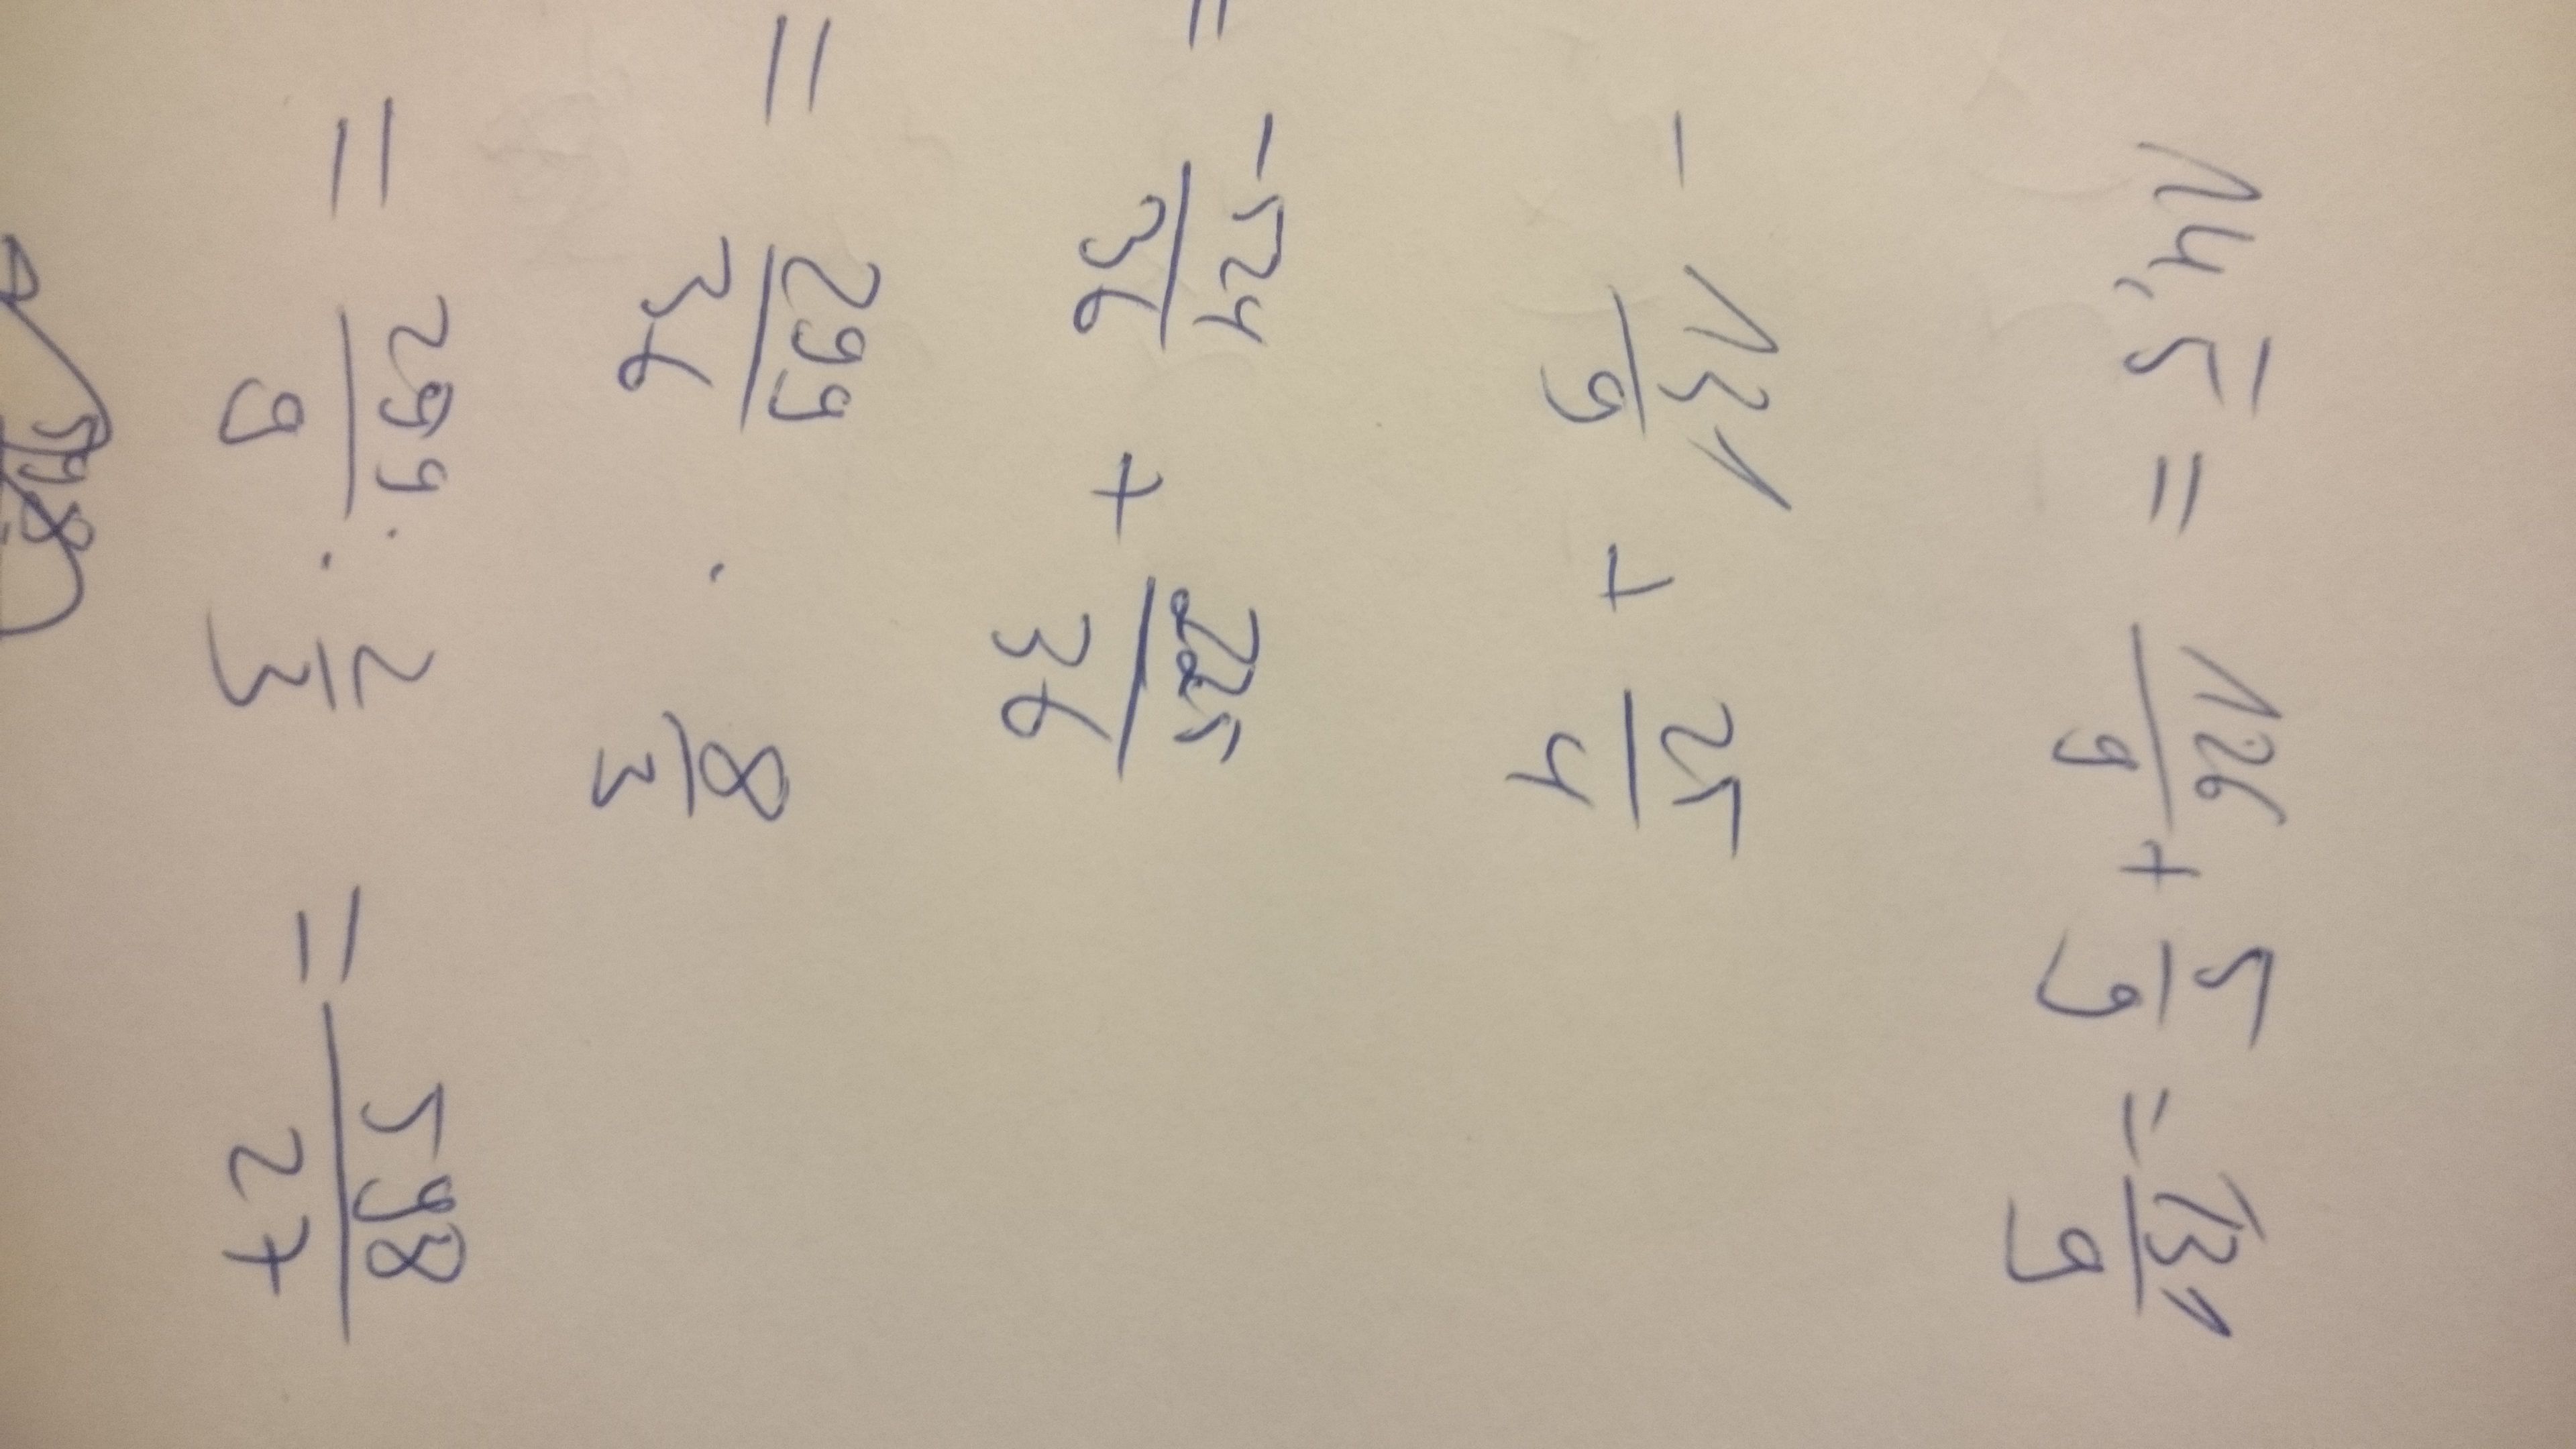 14,5̅ = 126/9 + 5/9 = 131/9
- 131/9 + 25/4
= - 524/36 + 225/36
= 299/36 · 8/3
= 299/9 · 2/3 = 598/27
598